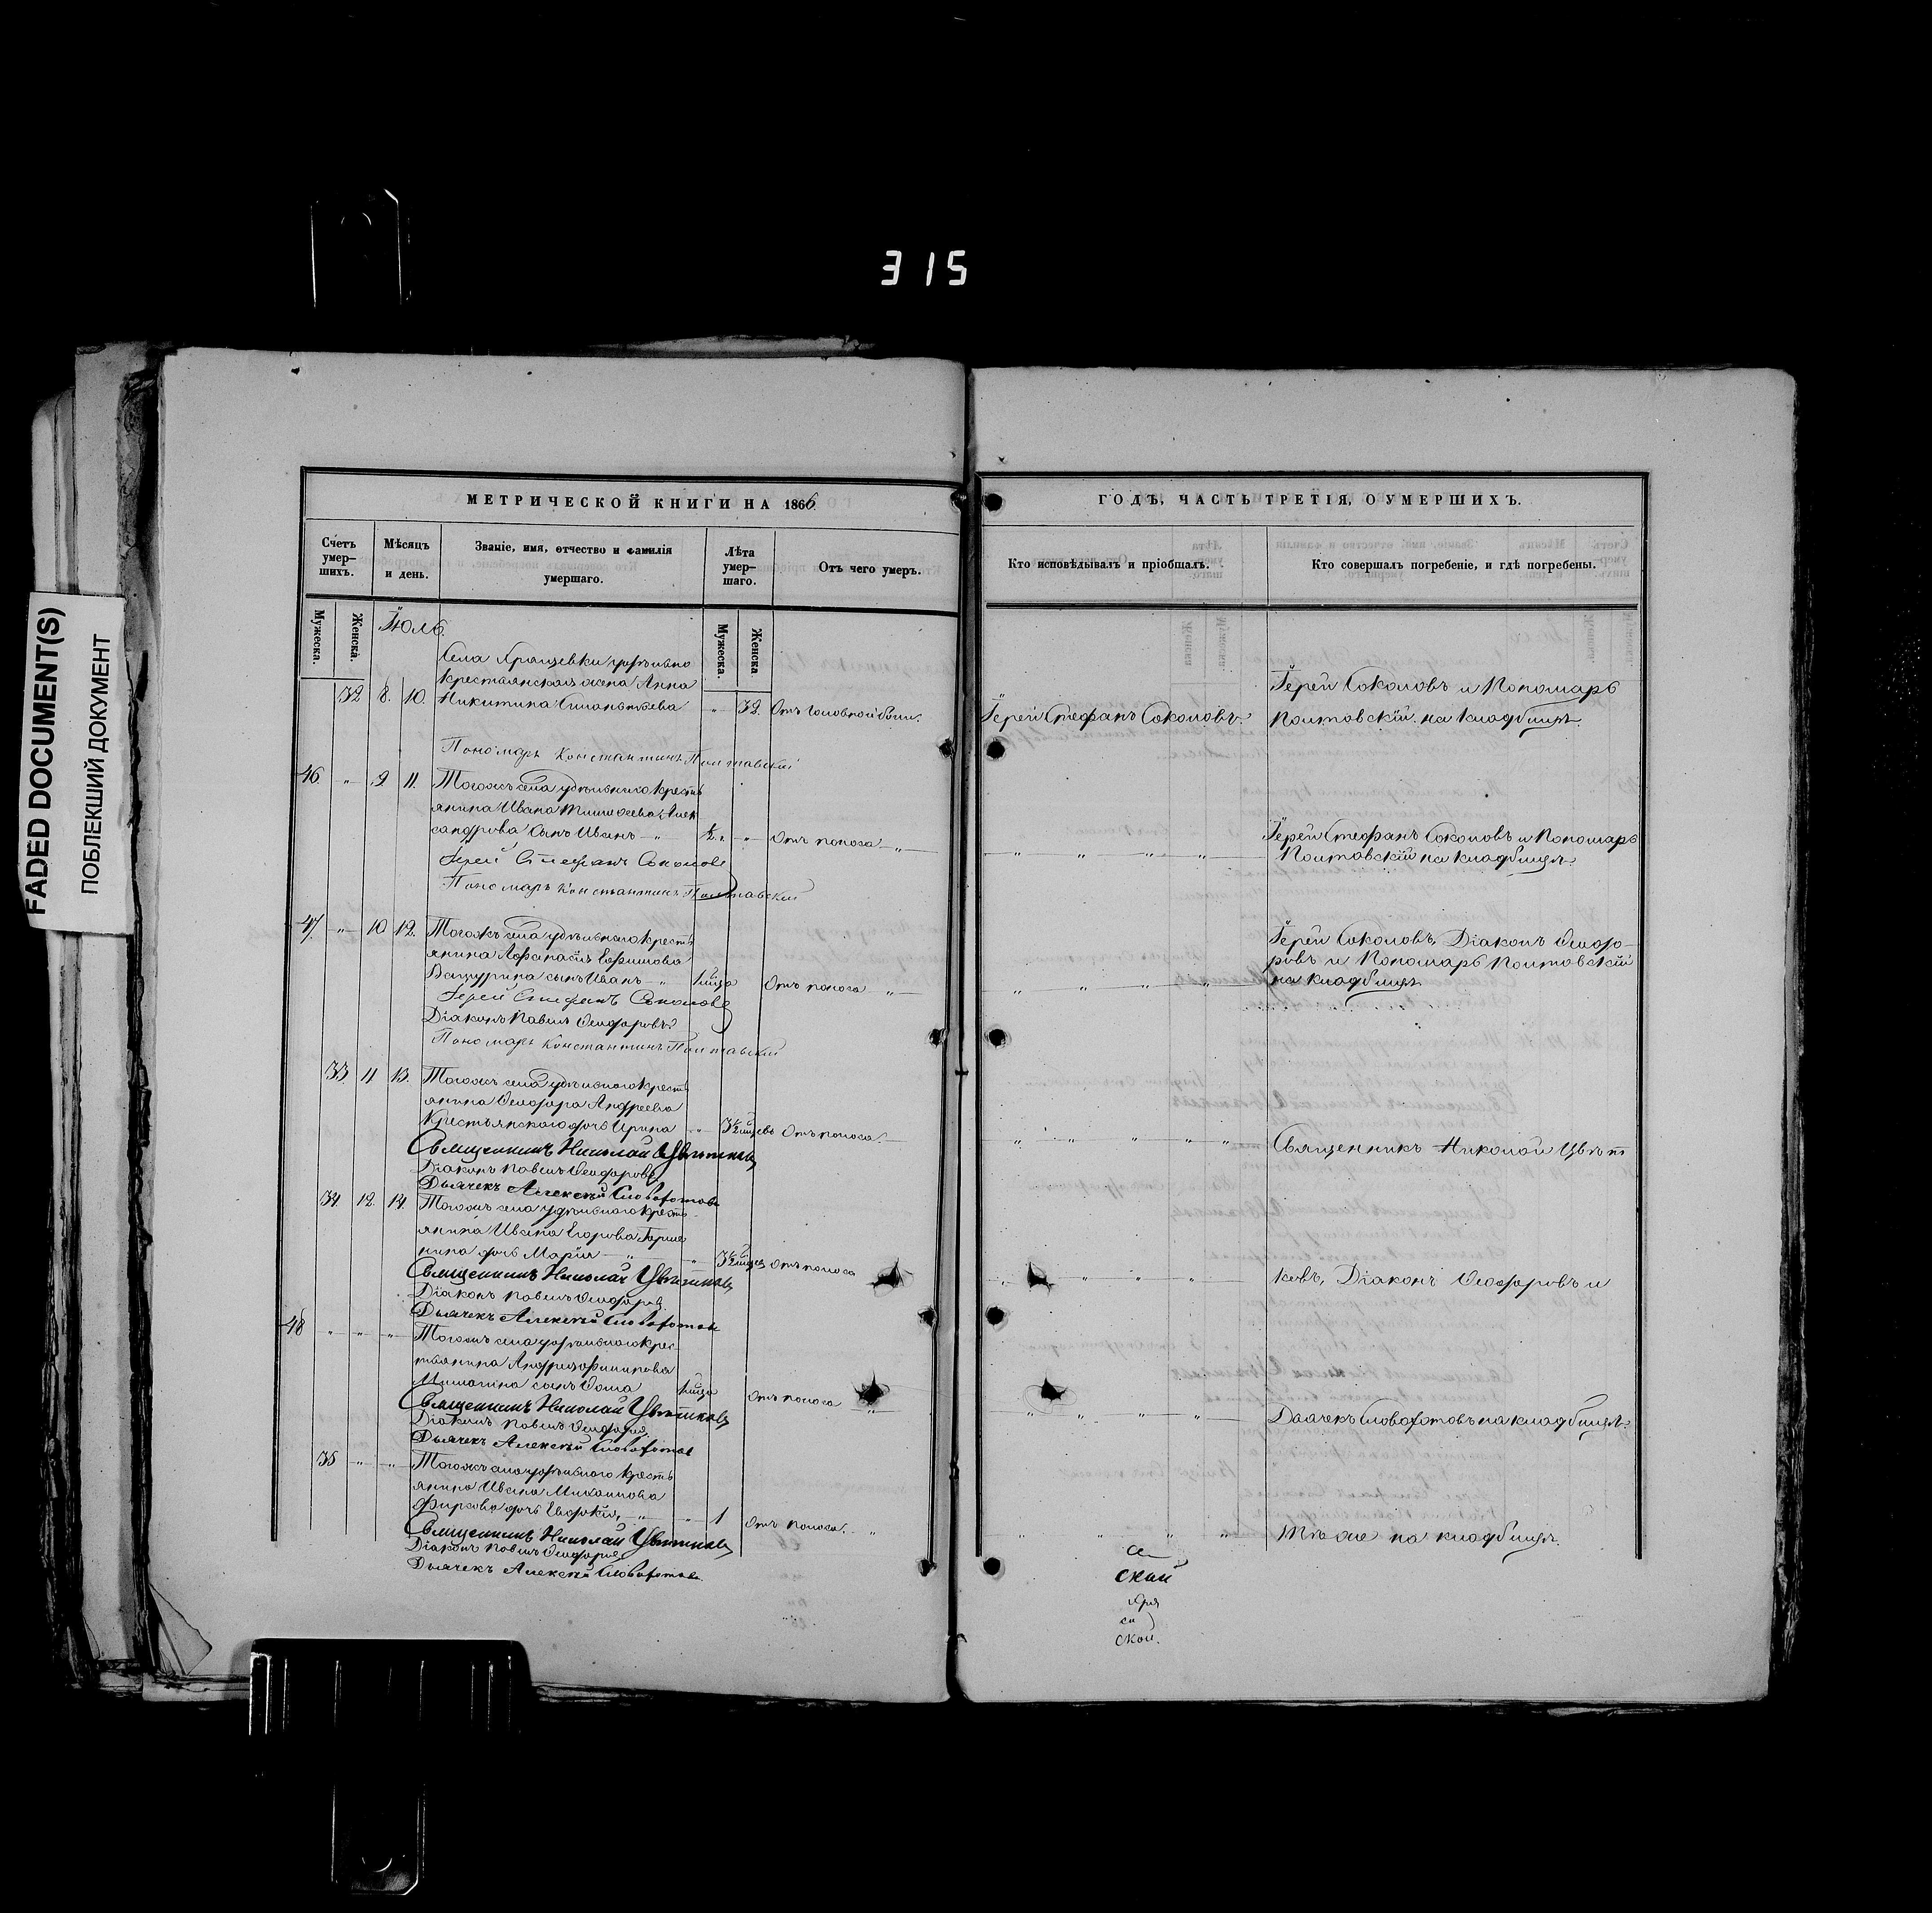 315
FADED DOCUMENT(S)
ПОБЛЕКШИЙ ДОКУМЕНТ
МЕТРИЧЕСКОЙ КНИГИ НА 1866
ГОДЪ, ЧАСТЬ ТРЕТІЯ, О УМЕРШИХЪ.
Счетъ умер-шихъ. Мѣсяцъ и день. Званіе, имя, отчество и фамилія умершаго. Лѣта умер-шаго. Отъ чего умеръ. Кто исповѣдывалъ и пріобщалъ. Кто совершалъ погребеніе, и гдѣ погребены.
Мужеска. Женска. Мужеска. Женска
Іюль.
Села удѣльно
крестьянская жена Анна
32 8. 10. Никитина " 32. Отъ головной боли. Іерей Стефанъ Соколовъ.
Іерей Соколовъ и Пономарь
Полтавскій. на кладбищѣ.
Пономарь Константинъ Полтавскій
46 " 9 11. Тогожъ села удѣльнаго кресть
янина Ивана Алек
сандрова сынъ Иванъ " ½ г. " Отъ поноса "
Іерей Стефанъ Соколовъ
Пономарь Константинъ Полтавскій
Іерей Стефанъ Соколовъ и Пономарь
Полтавскій на кладбищѣ.
47. " 10 12. Тогожъ села удѣльнаго кресть
янина Афанасія Ефимова
сынъ Иванъ " Отъ поноса "
Іерей Стефанъ Соколовъ
Діаконъ Павелъ Ѳеодоровъ
Пономарь Константинъ Полтавскій
Іерей Соколовъ, Діаконъ Ѳеодо-
ровъ и Пономарь Полтавскій
на кладбищѣ.
33 11 13. Тогожъ села удѣльнаго кресть
янина Ѳеодора Андреева
Крестьянскаго дочь Ирина " 3½ Отъ поноса.
Священникъ Николай Цвѣтковъ
Діаконъ Павелъ Ѳеодоровъ
Дьячекъ Алексѣй Словохотовъ
Священникъ Николай Цвѣт
34. 12. 14. Тогожъ села удѣльнаго кресть
янина Ивана Егорова
дочь Марія " " 3½ Отъ поноса
Священникъ Николай Цвѣтковъ
Діаконъ Павелъ Ѳеодоровъ.
Дьячекъ Алексѣй Словохотовъ
ковъ, Діаконъ Ѳеодоровъ и
48 " " " Тогожъ села удѣльнаго крес
тьянина Андрея Филипова
сынъ Ѳома Отъ поноса "
Священникъ Николай Цвѣтковъ
Діаконъ Павелъ Ѳеодоровъ.
Дьячекъ Алексѣй Словохотовъ
Дьячекъ Словохотовъ на кладбищѣ.
35 " " Тогожъ села удѣльнаго кресть
янина Ивана Михайлова
Фирсова дочь Евдокія, " " 1 Отъ поноса. "
Священникъ Николай Цвѣтковъ
Діаконъ Павелъ Ѳеодоровъ
Дьячекъ Алексѣй Словохотовъ
Тѣ же на кладбищѣ.
ской.